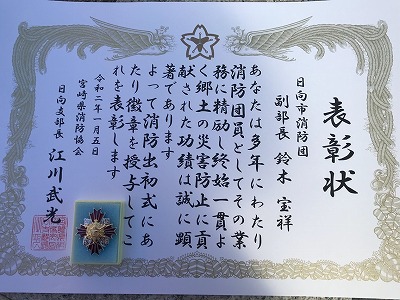 表彰状
日向市消防団
副部長 鈴木宝祥
あなたは多年にわたり
消防団員としてその業
務に精励し終始一貫よ
く郷土の災害防止に貢
献された功績は誠に顕
著であります
よって消防出初式にあ
たり徽章を授与してこ
れを表彰します
令和二年一月五日
宮崎県消防協会
日向支部長 江川武光